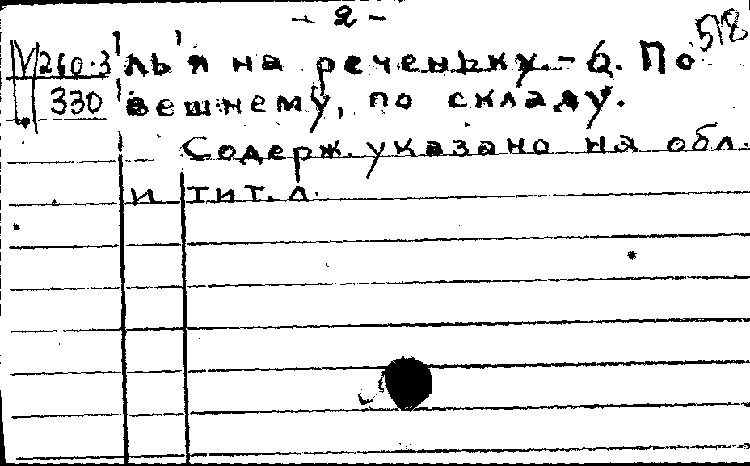 - 2 -
518
М260.3 ль я на реченьку. - 6. По
330 вешнему, по складу.
Содерж. указано на обл.
и тит. л.